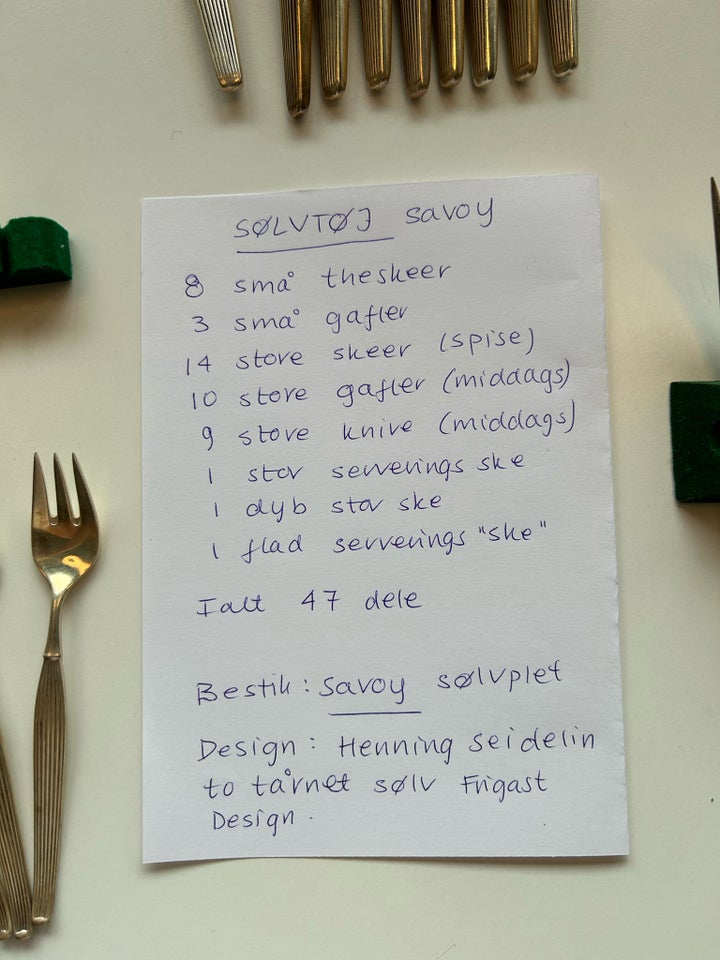 SØLVTØJ savoy
8 små theskeer
3 små gafler
14 store skeer (spise)
10 store gafler (middags)
9 store knive (middags)
1 stor serverings ske
1 dyb stor ske
1 flad serverings "ske"
Ialt 47 dele
Bestik: savoy sølvplet
Design: Henning seidelin
to tårnet sølv Frigast
Design.